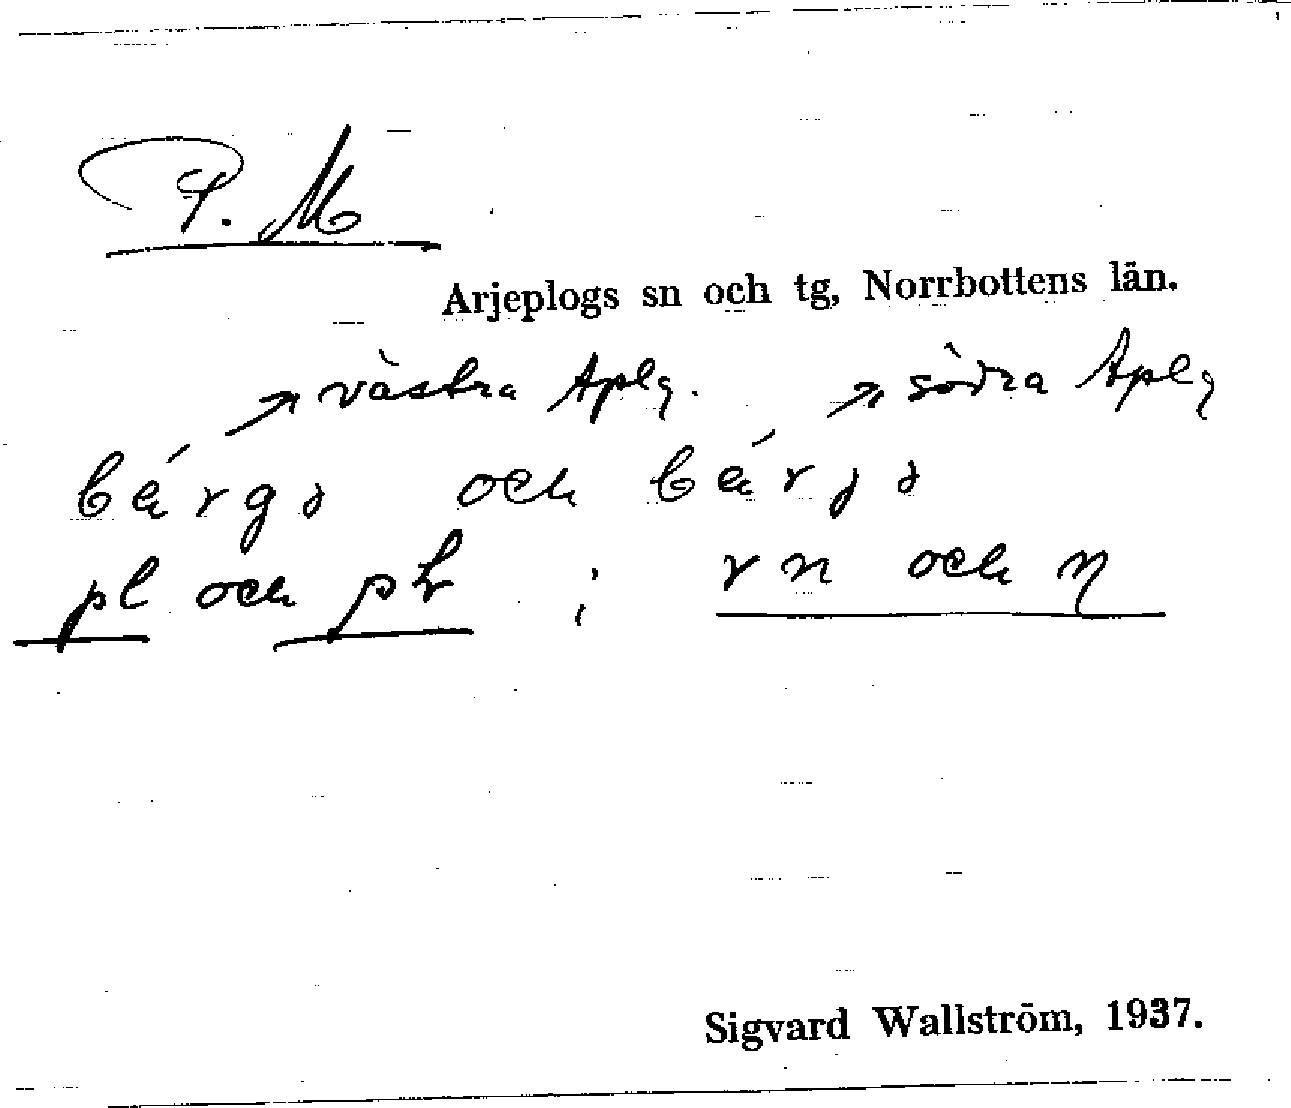 P. M
Arjeplogs sn och tg, Norrbottens län.
↗ västra Aplg. ↗ södra Aplg
och
pl och ; rn och
Sigvard Wallström, 1937.